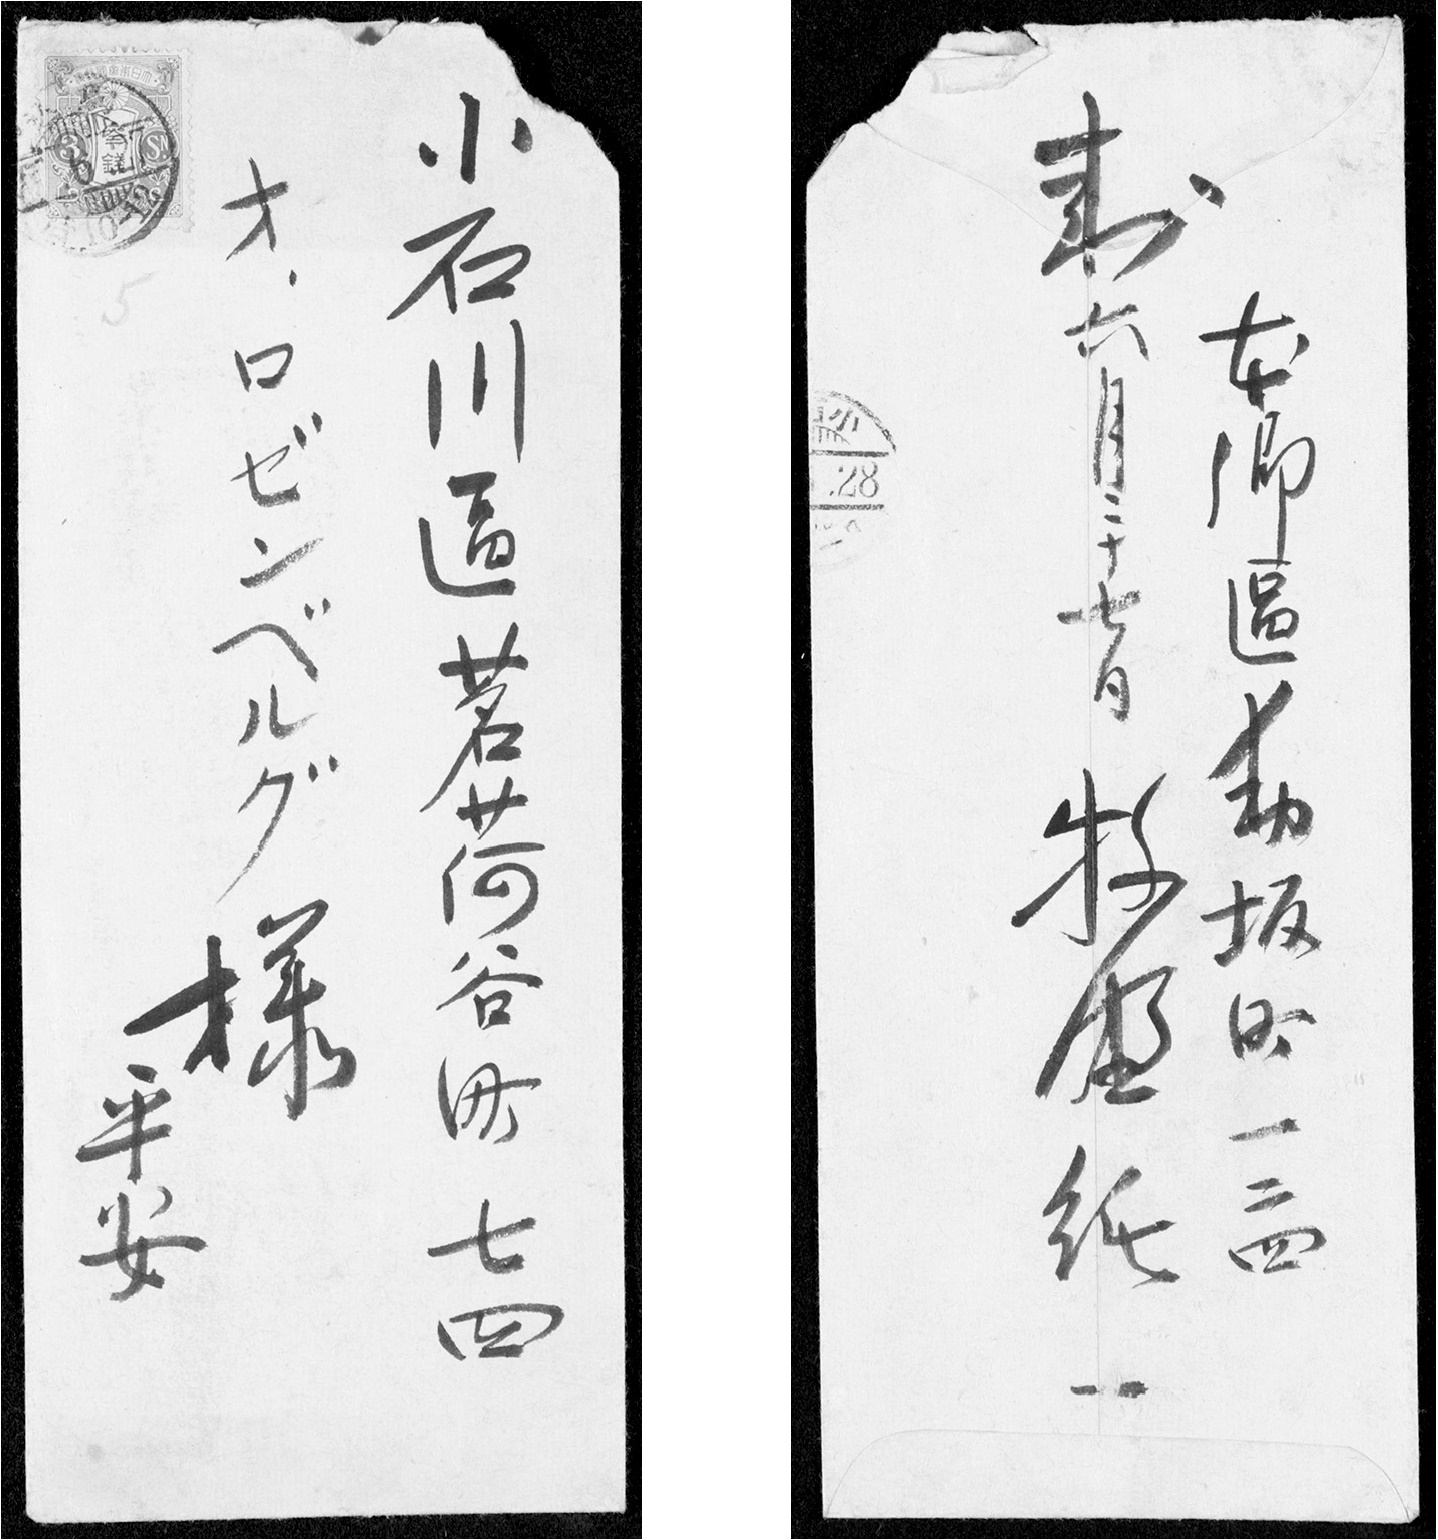 小石川區茗荷谷町 七四
オ・ロゼンベルグ様
平安
3 SN
參錢
本郷區動坂町一二四
封 六月二十七日 牧
.28